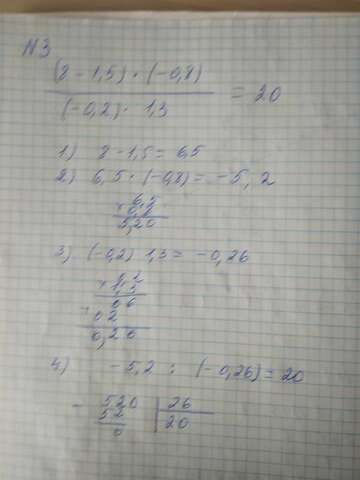 №3
(8 - 1,5) · (-0,8)
(-0,2) · 1,3
= 20
1) 8 - 1,5 = 6,5
2) 6,5 · (-0,8) = -5,2
× 6,5
0,8
5,20
3) (-0,2) · 1,3 = -0,26
× 0,2
1,3
06
+ 02
0,26
4) -5,2 : (-0,26) = 20
- 520 | 26
52 | 20
0